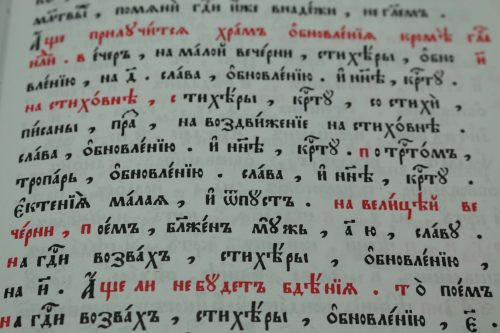 мл҃твы̀, помѧнѝ гдⷭ҇и и҆̀же внаде́жи, не гл҃емъ.
А҆́ще прилꙋчи́тсѧ хра́мъ ѡ҆бновле́нїѧ кромѣ̀
в вече́ръ, на ма́лой вече́рни, стихи́ры, ѡ҆бно
вле́нїю, на д҃. сла́ва, ѡ҆бновле́нїю. и҆ нн҃ѣ, крⷭ҇тꙋ̀.
на стихо́внѣ, стихи́ры, крⷭ҇тꙋ̀, со стихѝ,
пи́саны, на воздви́женїе на стихо́внѣ.
сла́ва, ѡ҆бновле́нїю. и҆ нн҃ѣ, крⷭ҇тꙋ̀. по трⷭ҇то́мъ,
тропа́рь, ѡ҆бновле́нїю. сла́ва, и҆ нн҃ѣ, крⷭ҇тꙋ̀.
є҆ктенїѧ̀ ма́лаѧ, и҆ ѿпꙋ́стъ. на вели́цѣй ве
че́рни, пое́мъ, бл҃же́нъ мꙋ́жъ, а҃ю, сла́вꙋ.
на гдⷭ҇и воззва́хъ, стихи́ры, ѡ҆бновле́нїю,
на и҃. А҆́ще ли не бꙋ́детъ бдѣ́нїѧ. то̀ пое́мъ
на гдⷭ҇и воззва́хъ, стихи́ры, ѡ҆бновле́нїю,